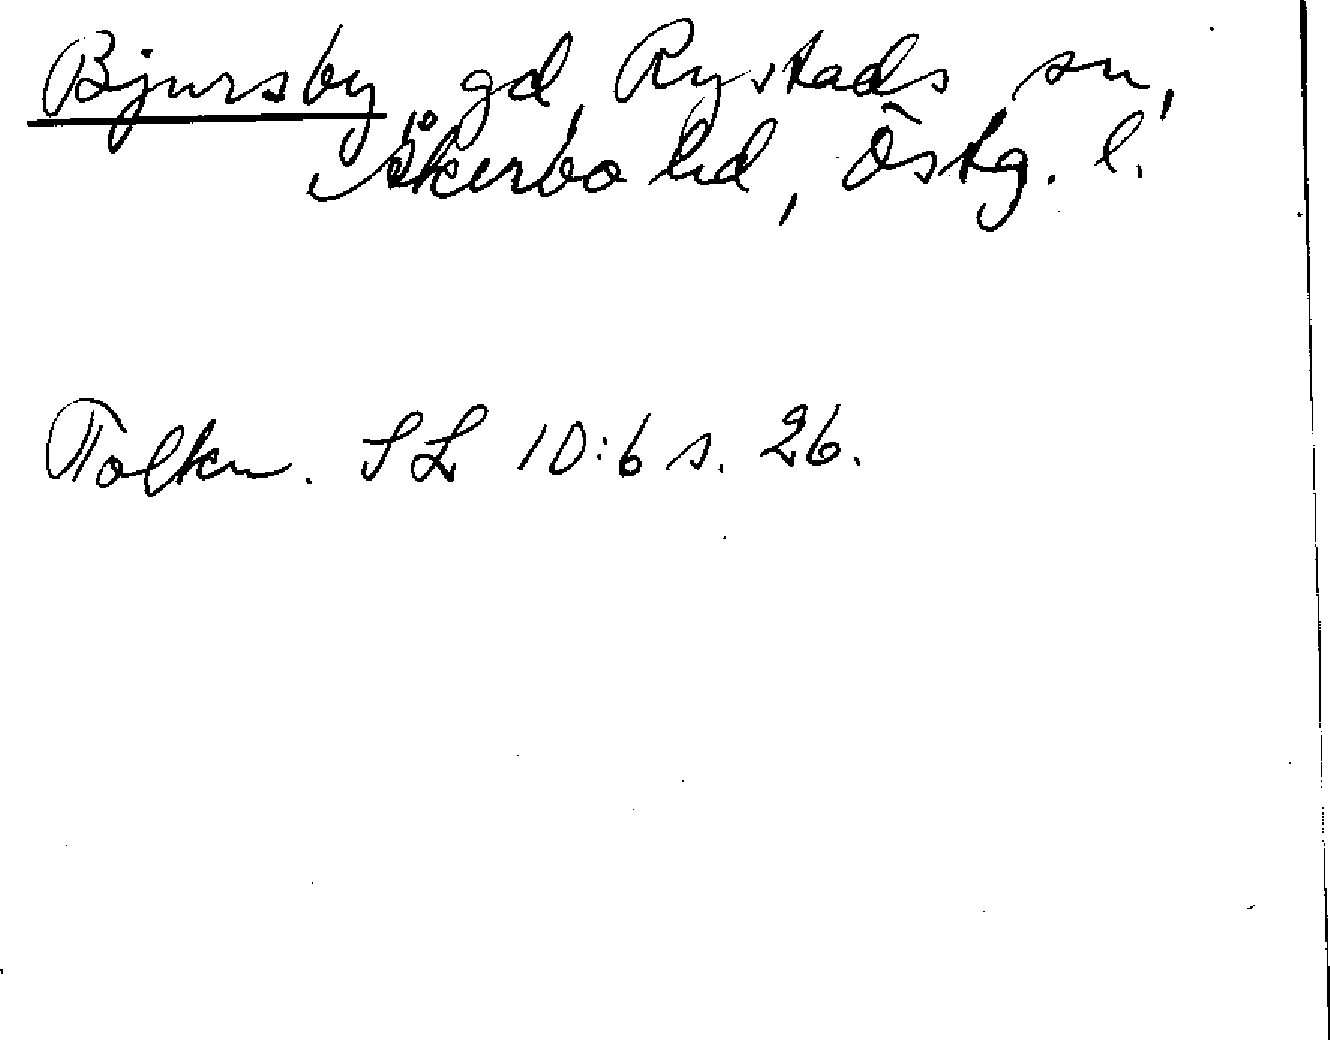 Bjursby, gd, Rystads sn,
Åkerbo hd, Östg. l.
Tolkn. SL 10:6 s. 26.